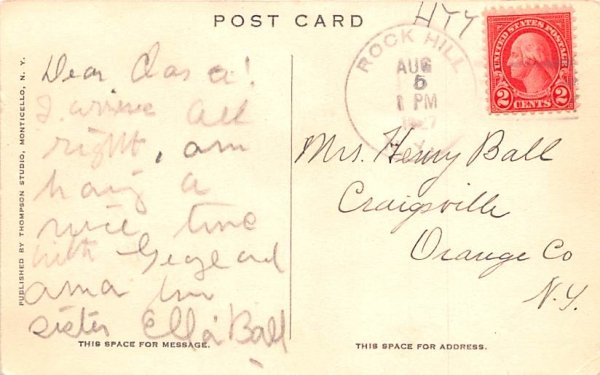 POST CARD
HTY
ROCK HILL
AUG
5
1 PM
1927
UNITED STATES POSTAGE
2 CENTS 2
PUBLISHED BY THOMPSON STUDIO, MONTICELLO, N. Y.
Dear Clara!
I arrive all
right, am
having a
nice time
with George and
Anna
sister Ella Ball
THIS SPACE FOR MESSAGE.
Mrs. Henry Ball
Craigsville
Orange Co
N.Y.
THIS SPACE FOR ADDRESS.